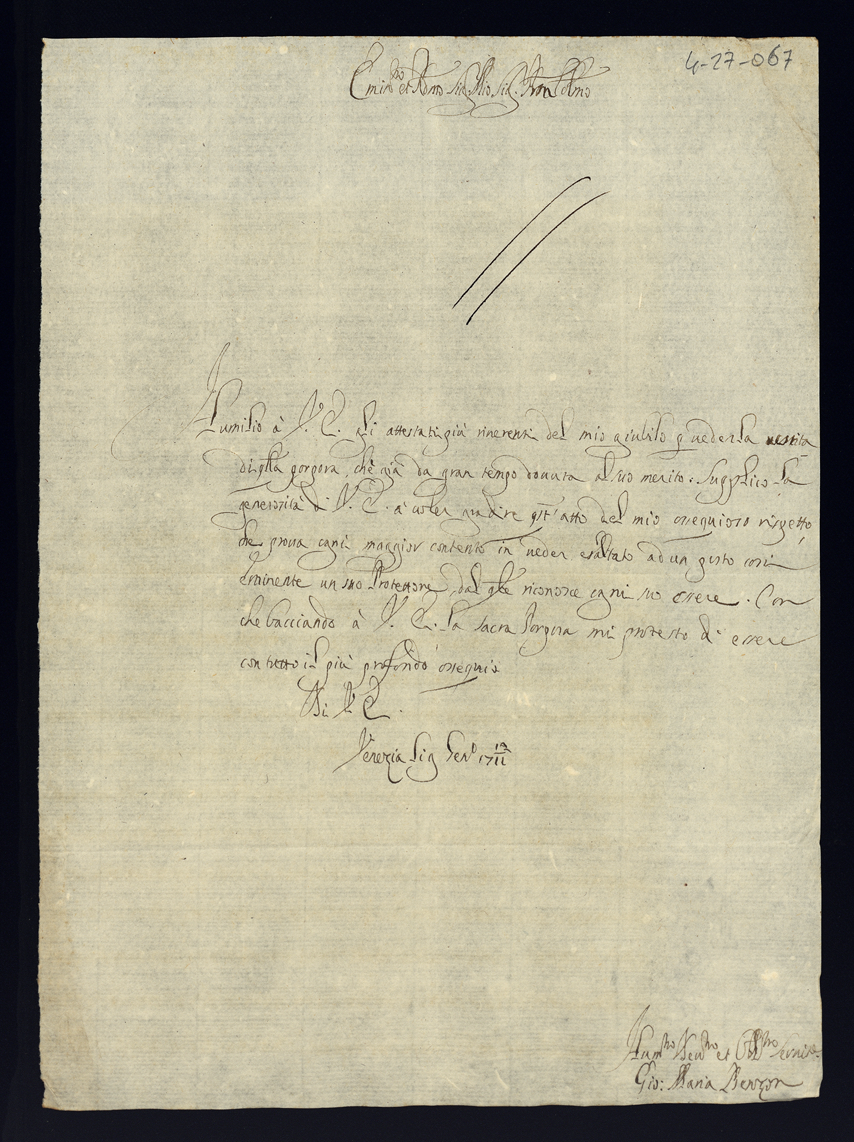 4-27-067
Emin.mo et Rmo Sig. Mio Sig. Pron Colmo
Humilio à V. E. gli attestati più riverenti del mio giubilo p vederla vestita
di qlla porpora, che già da gran tempo dovuta al suo merito. Supplico la
generosità di V. E. a voler gradire qst' atto del mio ossequioso rispetto,
che prova ogni maggior contento in veder esaltato ad un posto così
Eminente un suo Protettore, dal qle riconosce ogni suo essere. Con
che bacciando à V. E. la sacra Porpora mi protesto di essere
con tutto il più profondo ossequio
Di V. E.
Venezia li 9 Gen.o 1711/12
Hum.mo Dev.mo et Obl.mo
Gio: Maria Benzon